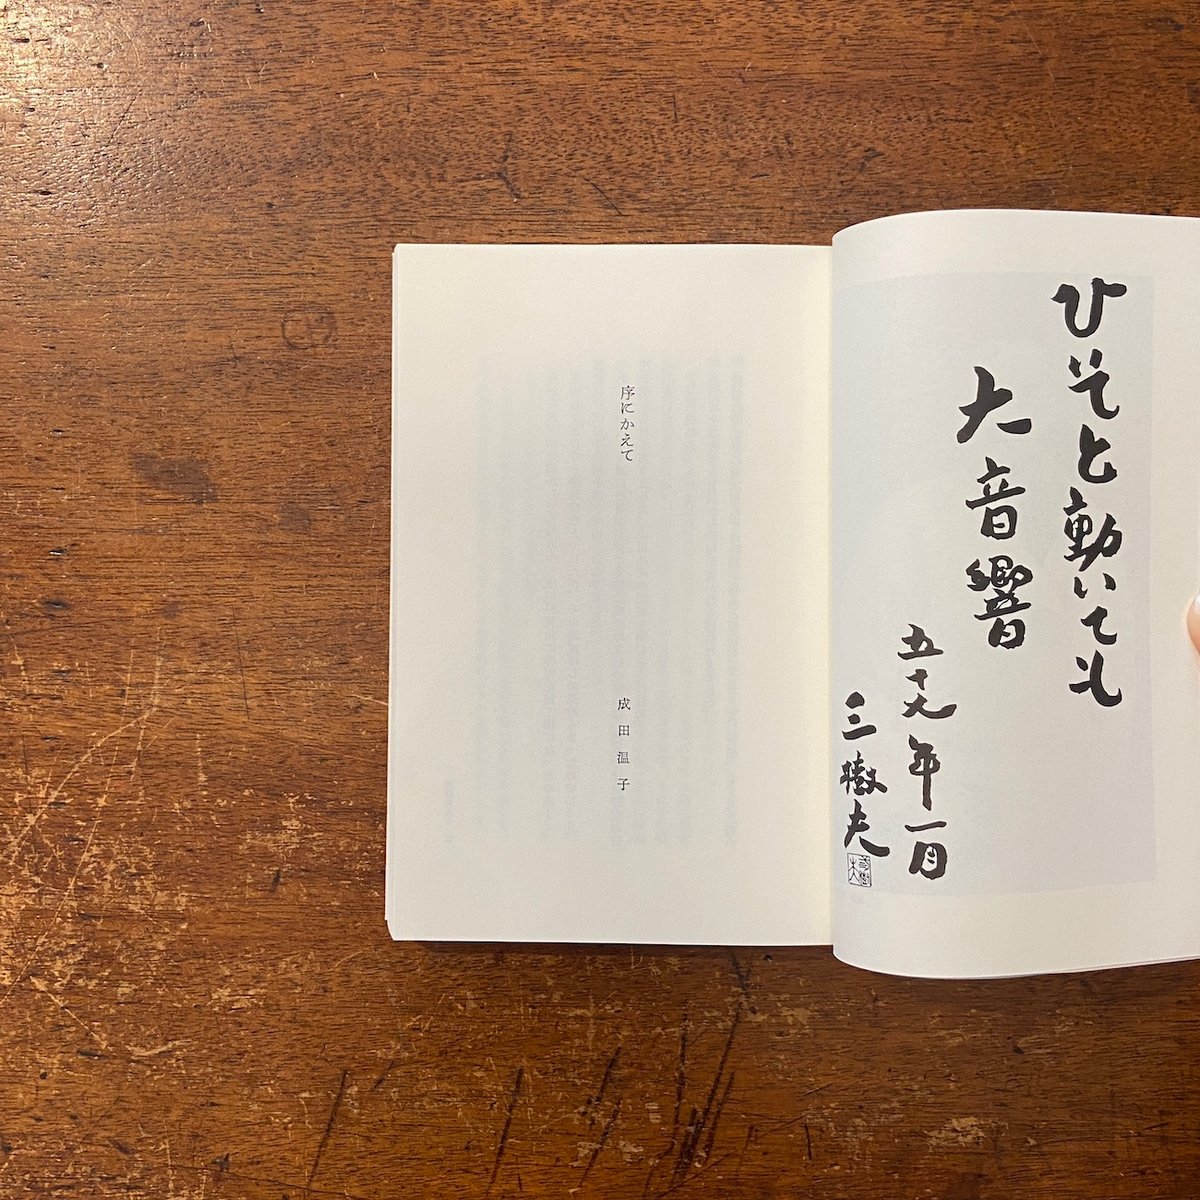 ひそと動いても
大音響
五十九年一月
三樹夫
序にかえて
成田温子